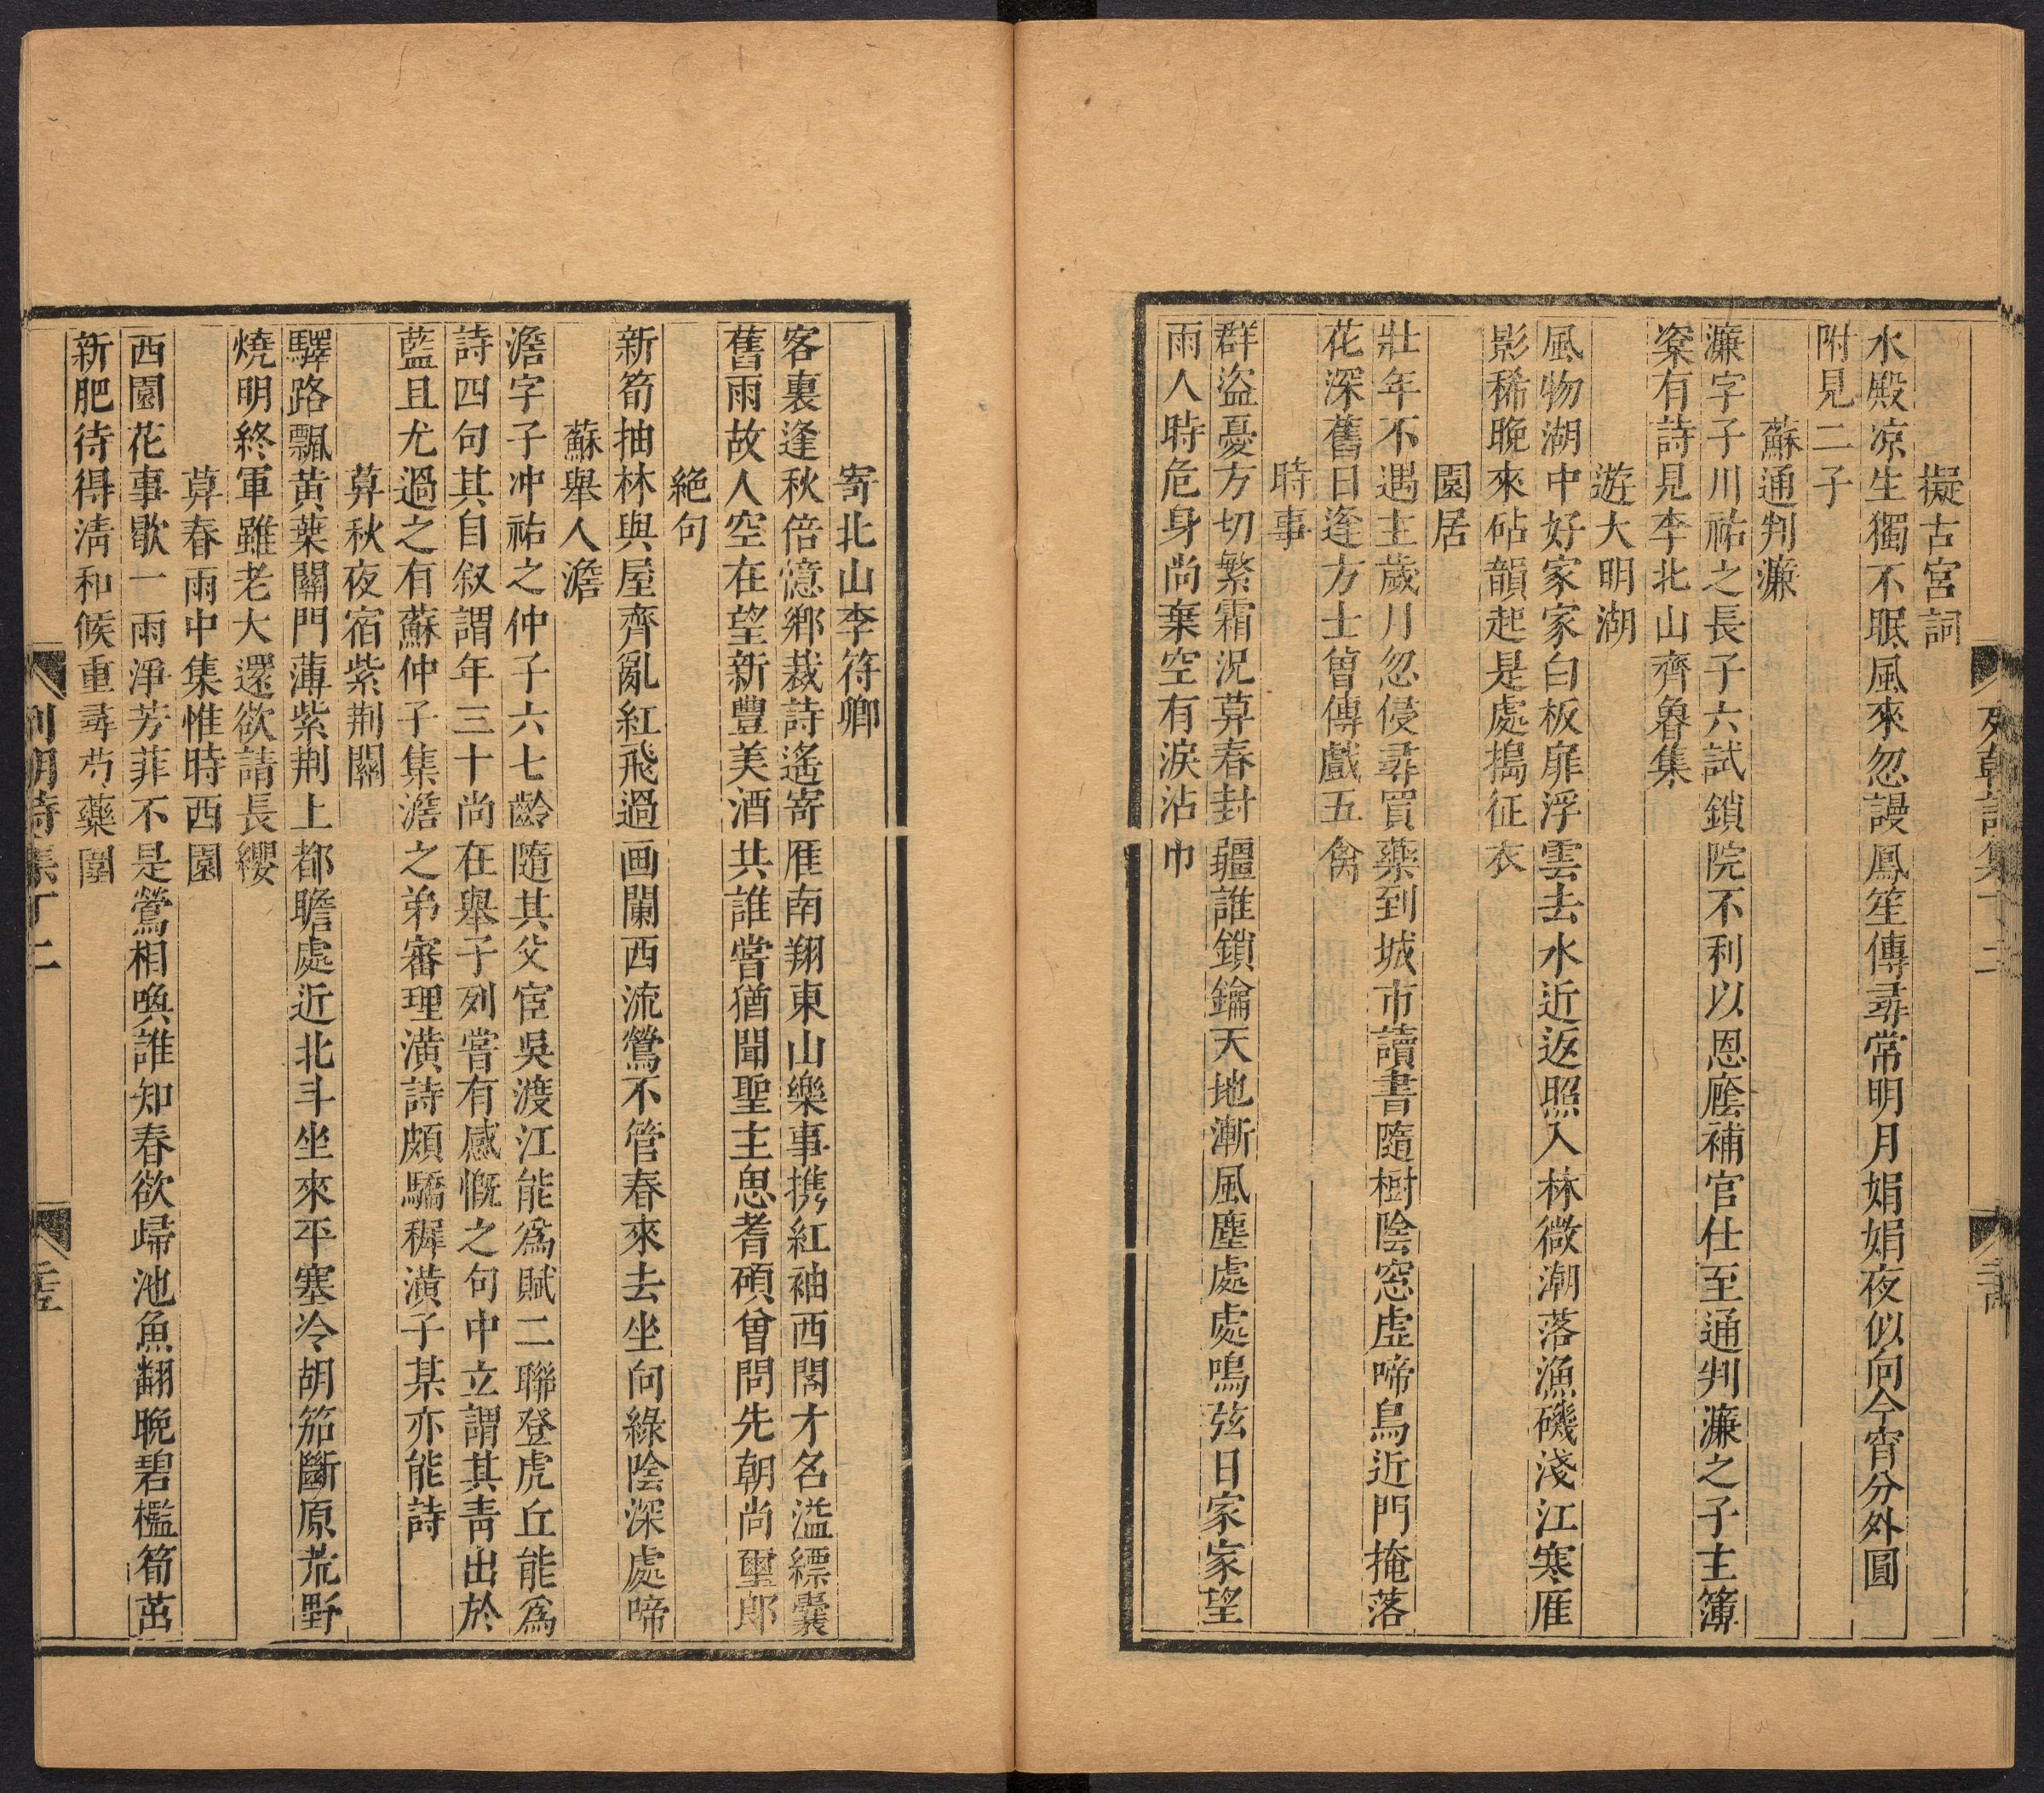 擬古宮詞
水殿凉生獨不眠風來忽謾鳳笙傳尋常明月娟娟夜似向今宵分外圓
附見二子
蘇通判濂
濂字子川祐之長子六試鎖院不利以恩廕補官仕至通判濂之子主簿
楶有詩見李北山齊魯集
遊大明湖
風物湖中好家家白板扉浮雲去水近返照入林微潮落漁磯淺江寒雁
影稀晚來砧韻起是處搗征衣
園居
壯年不遇主歲月忽侵尋買藥到城市讀書隨樹陰窓虛啼鳥近門掩落
花深舊日逢方士曾傳戲五禽
時事
群盗憂方切繁霜況莫春封疆誰鎖鑰天地漸風塵處處鳴弦日家家望
雨人時危身尚棄空有淚沾巾
列朝詩集丁二
寄北山李符卿
客裏逢秋倍憶鄉裁詩遙寄雁南翔東山樂事携紅袖西閣才名溢縹囊
舊雨故人空在望新豐美酒共誰嘗猶聞聖主思耆碩曾問先朝尚璽郎
絕句
新筍抽林與屋齊亂紅飛過画闌西流鶯不管春來去坐向綠陰深處啼
蘇舉人澹
澹字子冲祐之仲子六七齡隨其父宦吳渡江能爲賦二聯登虎丘能爲
詩四句其自叙謂年三十尚在舉子列嘗有感慨之句中立謂其靑出於
藍且尤過之有蘇仲子集澹之弟審理潢詩頗驕穉潢子某亦能詩
莫秋夜宿紫荆關
驛路飄黃葉關門薄紫荆上都瞻處近北斗坐來平塞冷胡笳斷原荒野
燒明終軍雖老大還欲請長纓
莫春雨中集惟時西園
西園花事歇一雨淨芳菲不是鶯相喚誰知春欲歸池魚翻晚碧檻筍茁
新肥待得淸和候重尋芍藥圍
列朝詩集丁二